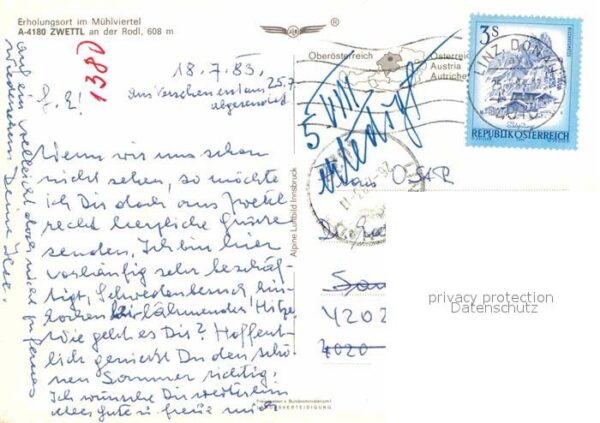 Erholungsort im Mühlviertel
A-4180 ZWETTL an der Rodl, 608 m
138
18.7.83,
aus Versehen erst am 25.7
abgesendet
Wenn wir uns schon
nicht sehen, so möchte
ich Dir doch aus Zwettl
recht herzliche Grüsse
senden. Ich bin hier
vorläufig sehr beschäf-
tigt, Schwedenbesuch,
lähmender Hitze.
Wie geht es Dir? Hoffent-
lich genießt Du den schö-
nen Sommer richtig.
Ich wünsche Dir weiterhin
alles Gute u. freue mich
auf ein vielleicht doch nicht zu fernes
Wiedersehen Deine
Alpine Luftbild Innsbruck
Freigegeben v. Bundesministerium f.
LANDESVERTEIDIGUNG
Oberösterreich
Österreich
Austria
Autriche
5 VIII
erledigt
3S
REPUBLIK ÖSTERREICH
LINZ, DONAU
4010
4202
4020
privacy protection
Datenschutz